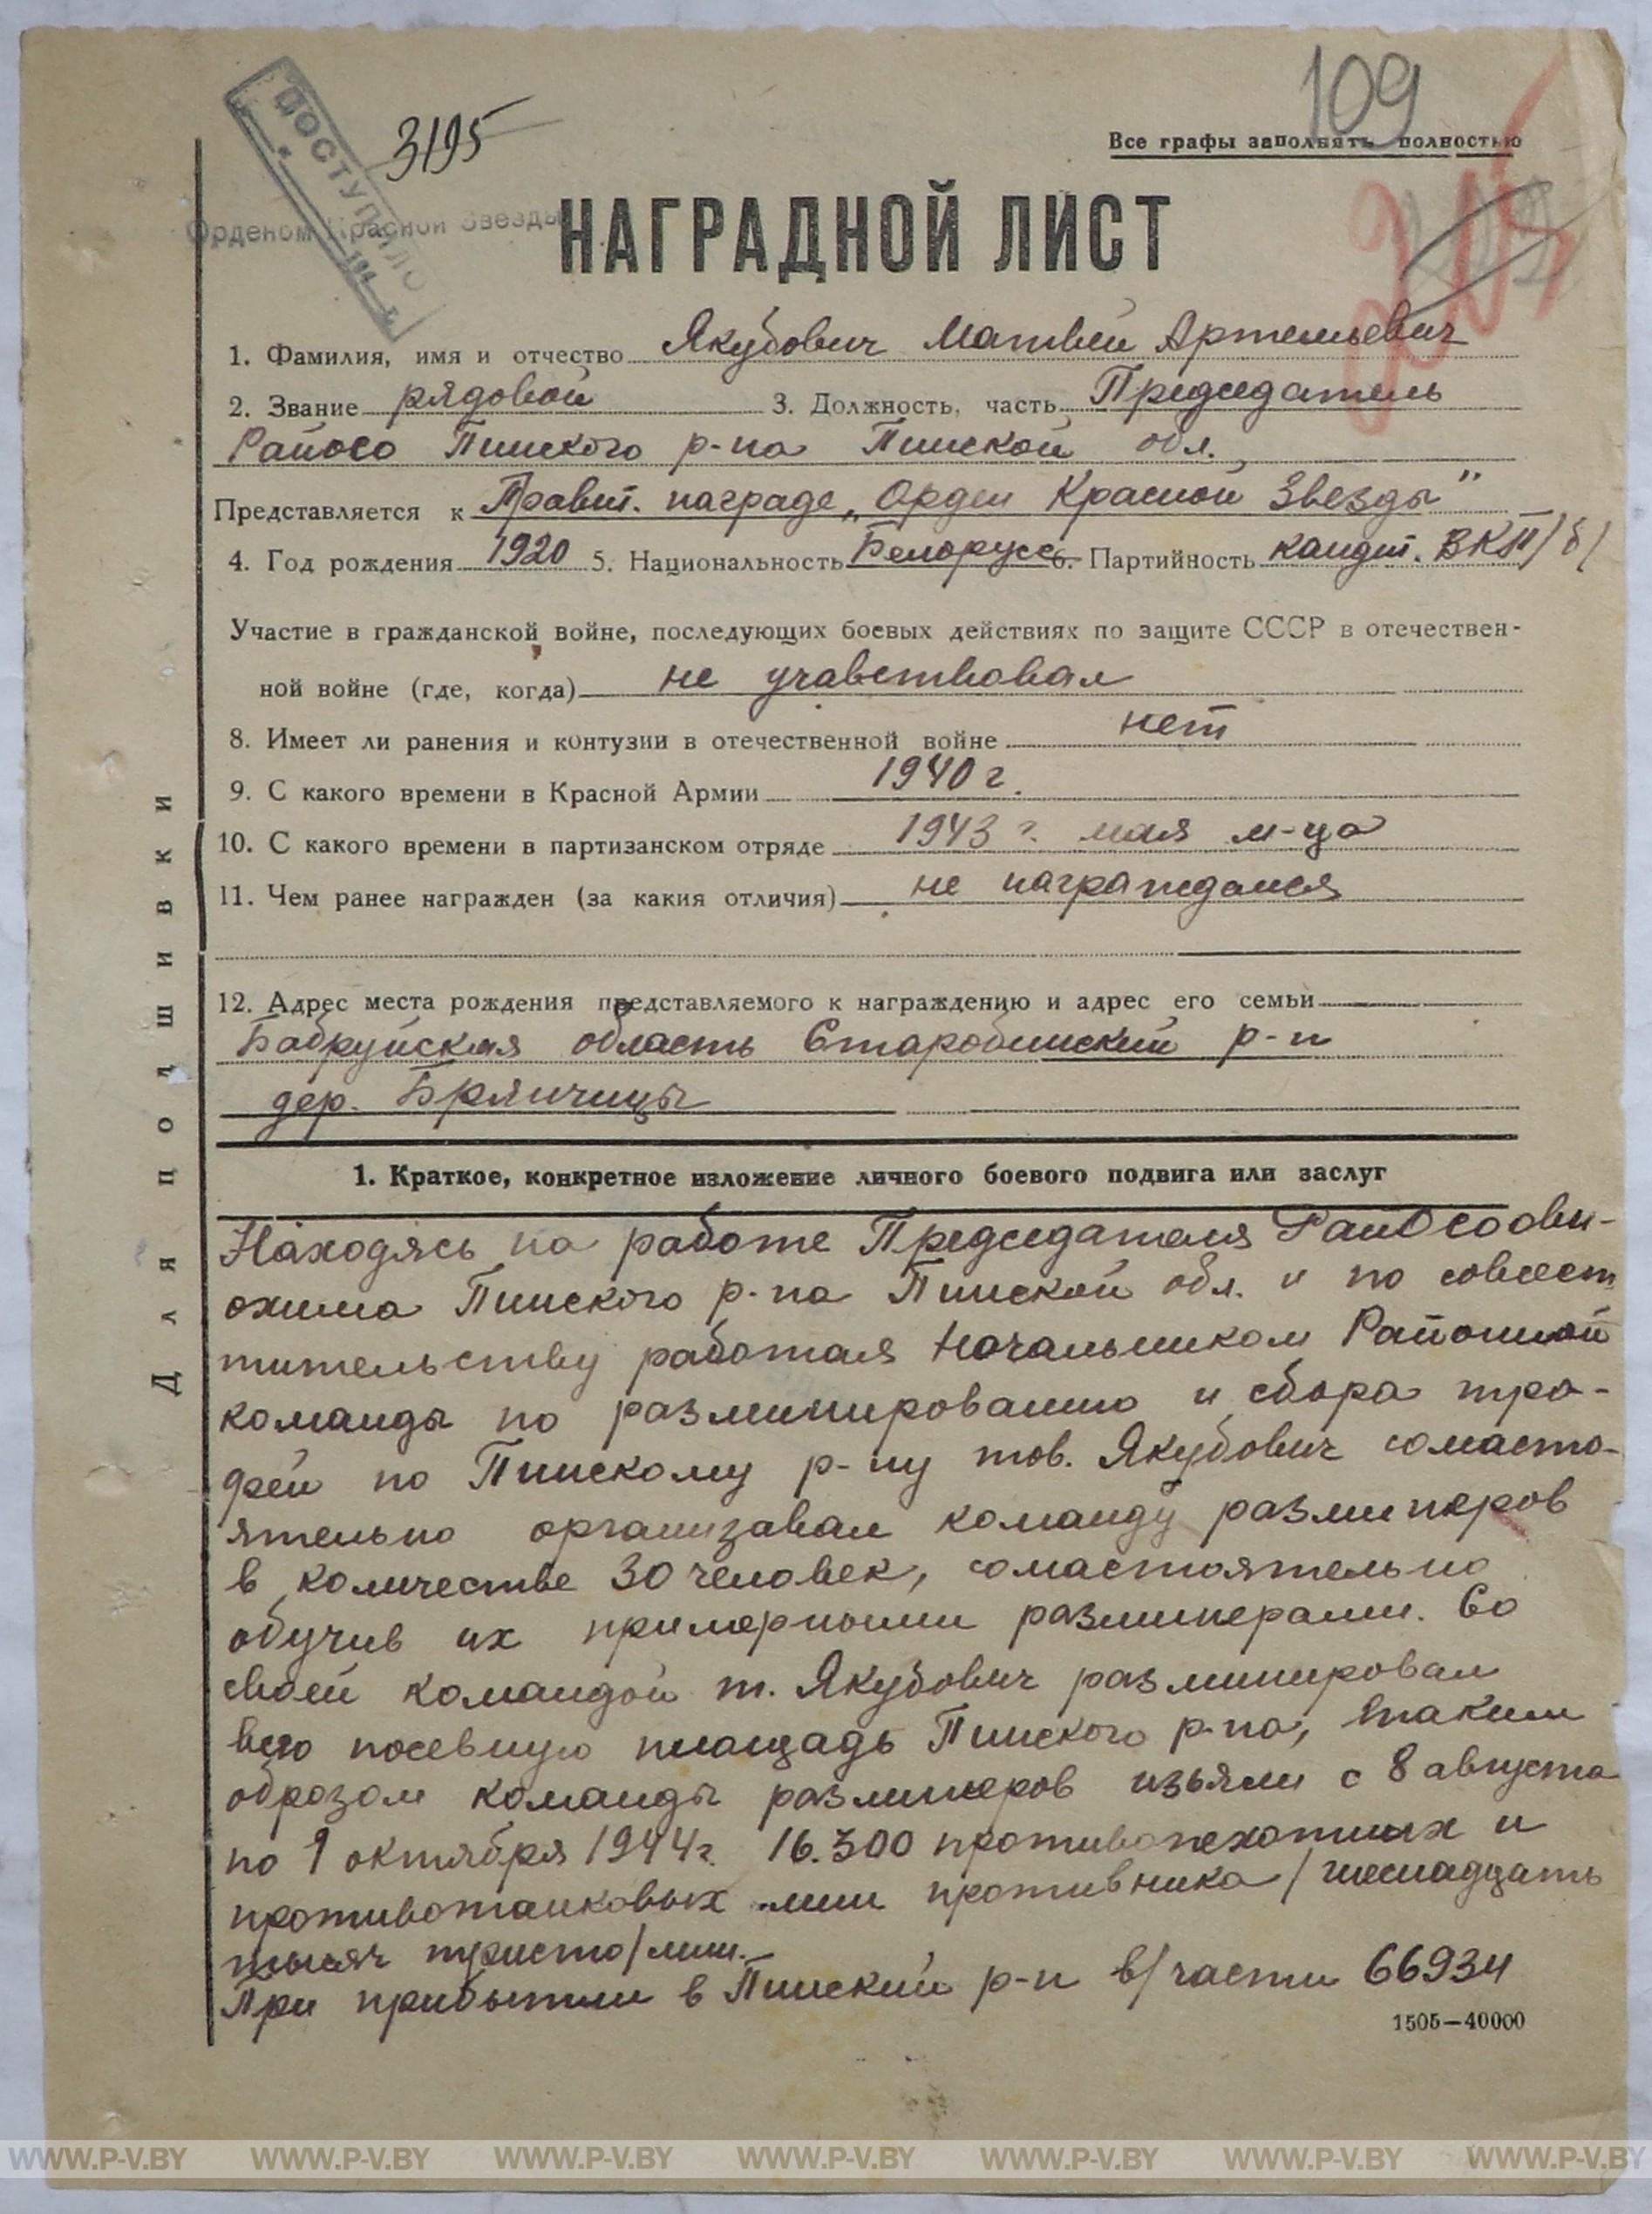 109
3195
Все графы заполнять полностью
ПОСТУПИЛО
194 г.
Орденом Красной Звезды
НАГРАДНОЙ ЛИСТ
1. Фамилия, имя и отчество Якубович Матвей Артемьевич
2. Звание рядовой 3. Должность, часть Председатель
Райосо Пинского р-на Пинской обл.
Представляется к Правит. награде „Орден Красной Звезды"
4. Год рождения 1920 5. Национальность Белорусс 6. Партийность кандит. ВКП/б/
Участие в гражданской войне, последующих боевых действиях по защите СССР в отечествен-
ной войне (где, когда) не учавствовал
8. Имеет ли ранения и контузии в отечественной войне нет
9. С какого времени в Красной Армии 1940 г.
10. С какого времени в партизанском отряде 1943 г. мая м-ца
11. Чем ранее награжден (за какия отличия) не награждался
12. Адрес места рождения представляемого к награждению и адрес его семьи
Бабруйская область Старобинский р-н
дер. Бряничицы
Для подшивки
1. Краткое, конкретное изложение личного боевого подвига или заслуг
Находясь на работе Председателя РайОсоави-
охима Пинского р-на Пинской обл. и по совмест
тительству работая Начальником Районной
команды по разминированию и сбора тро-
фей по Пинскому р-ну тов. Якубович самосто-
ятельно организавал команду разминеров
в количестве 30 человек, самостоятельно
обучив их примерными разминерами. Со
своей командой т. Якубович разминировал
всю посевную площадь Пинского р-на, таким
образом команды разминеров изъяли с 8 августа
по 1 октября 1944 г. 16.300 противопехотных и
противотанковых мин противника /шеснадцать
тысяч тристо/мин.
При прибытии в Пинский р-н в/части 66934
1505—40000
WWW.P-V.BY WWW.P-V.BY WWW.P-V.BY WWW.P-V.BY WWW.P-V.BY WWW.P-V.BY WWW.P-V.BY